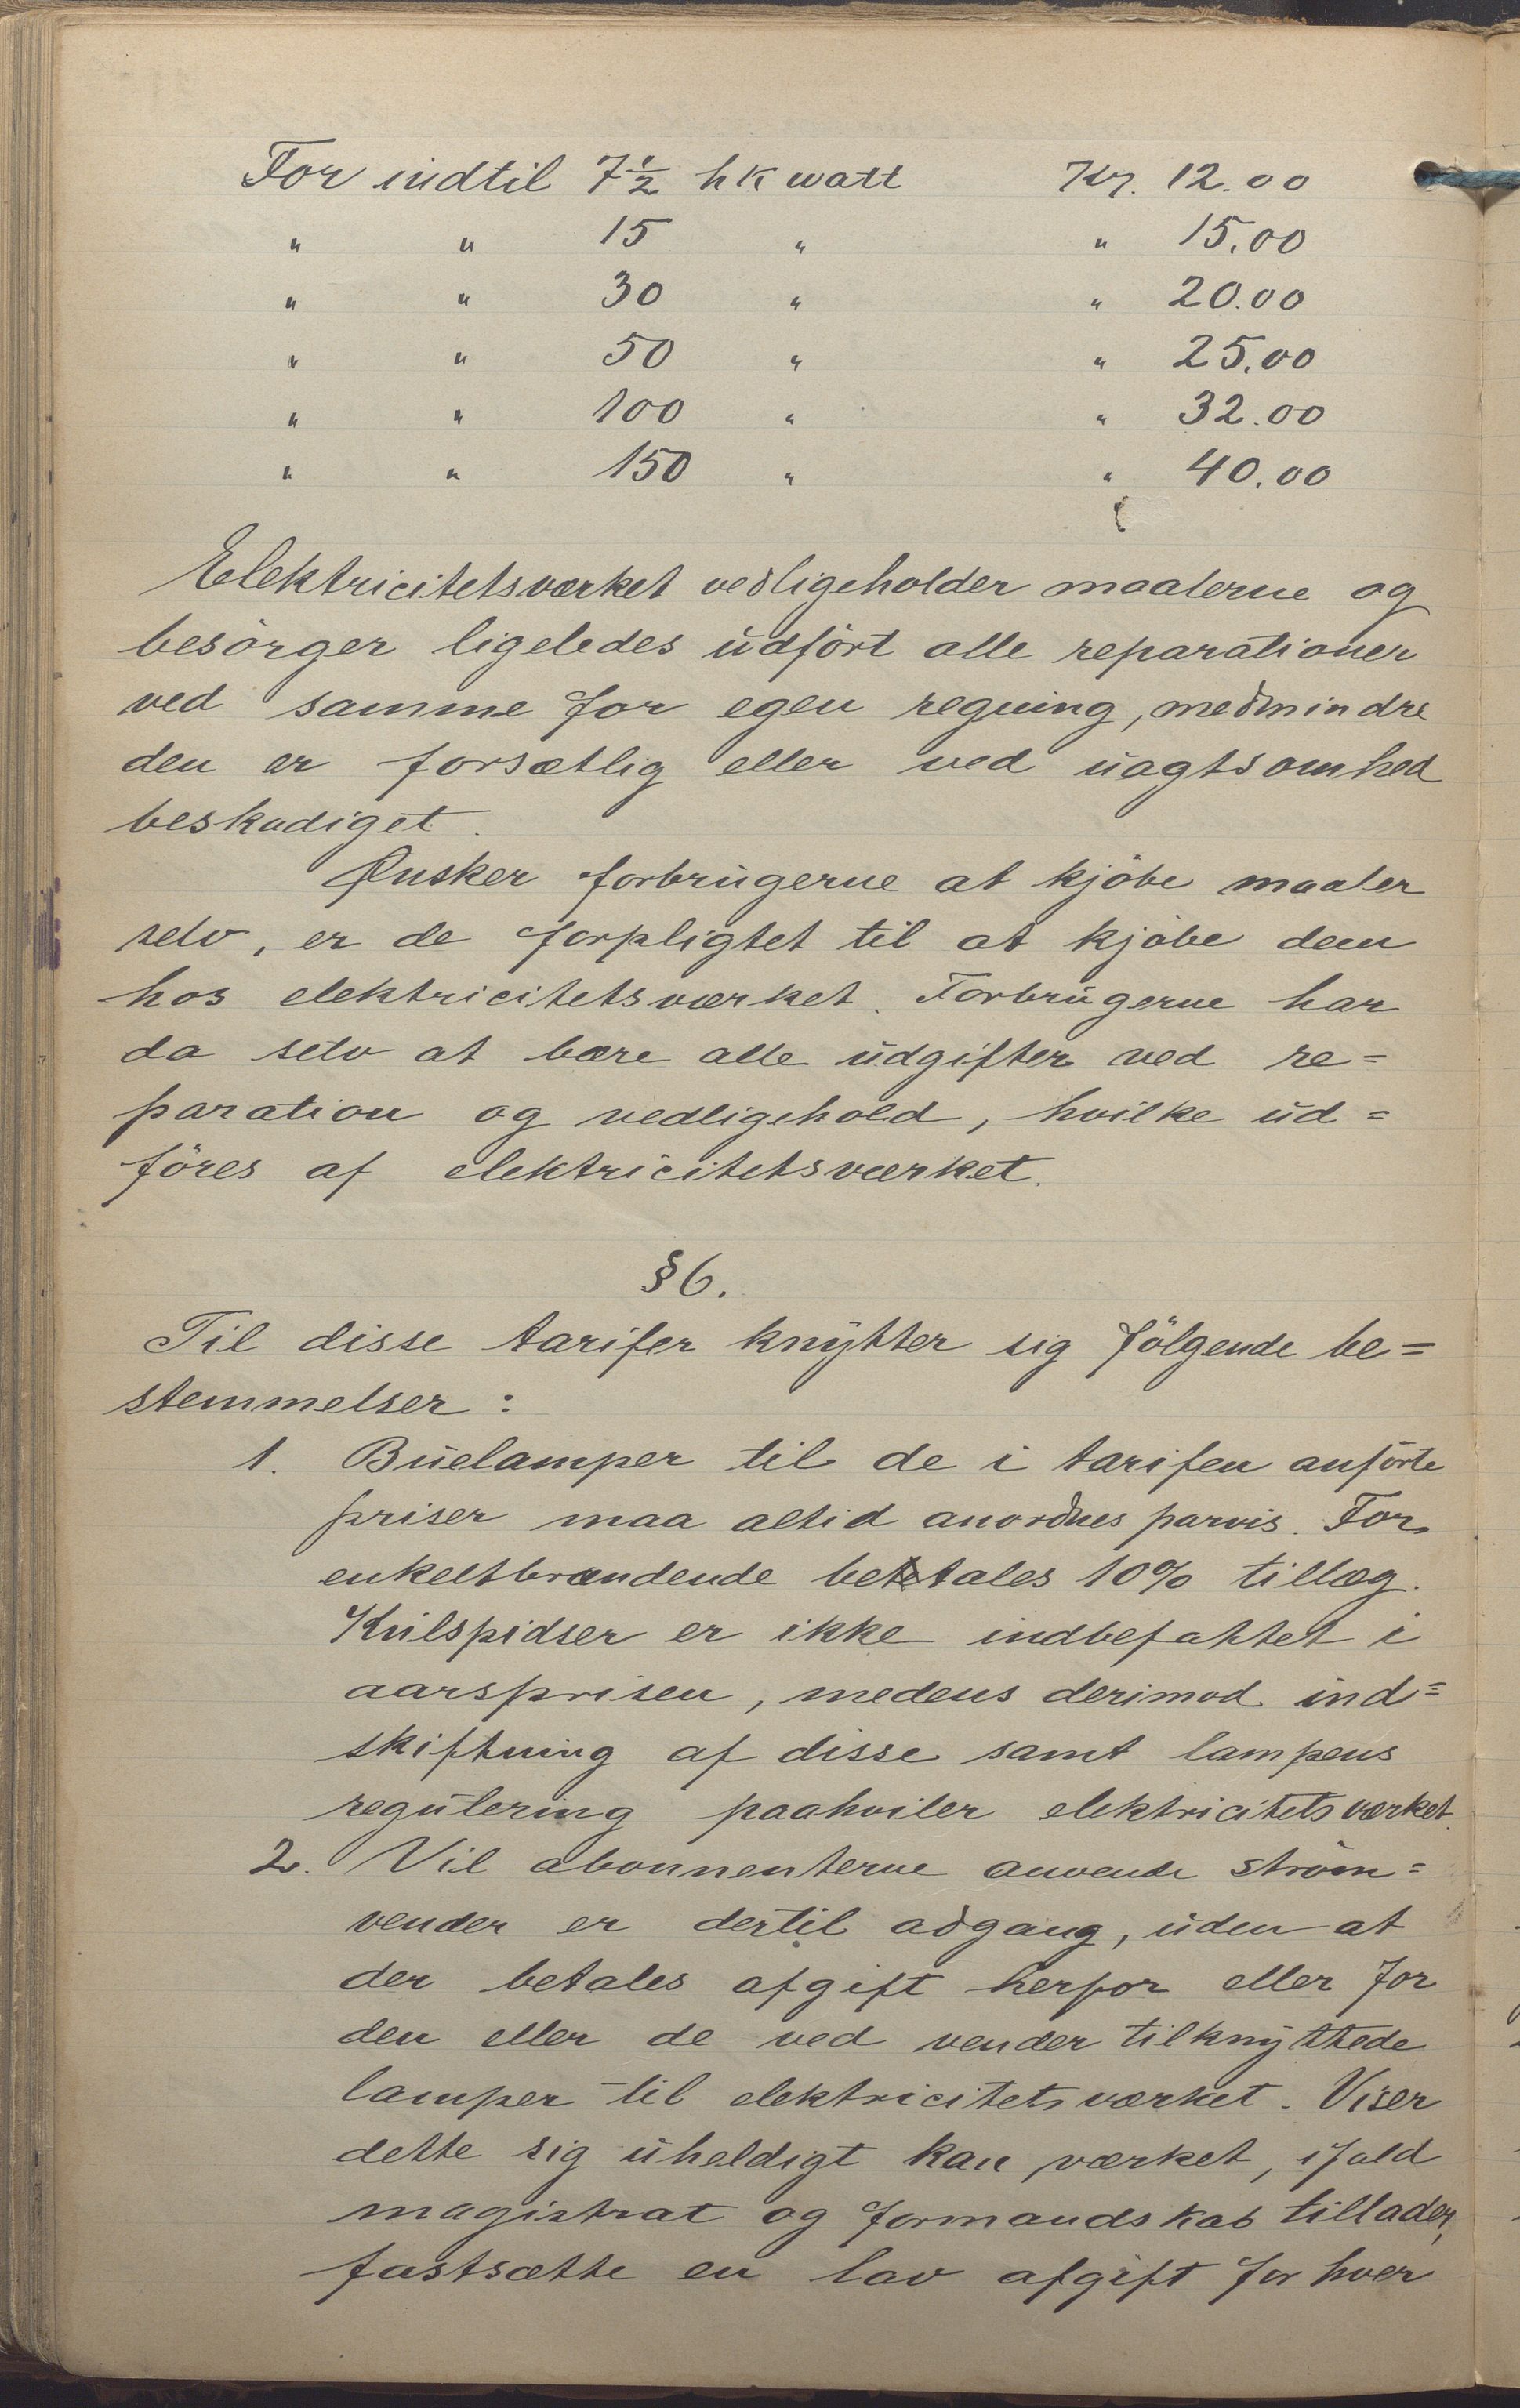 For indtil 7½ hk watt Kr. 12.00
" " 15 " " 15.00
" " 30 " " 20.00
" " 50 " " 25.00
" " 100 " " 32.00
" " 150 " " 40.00
Elektricitetsværket vedligeholder maalerne og
besörger ligeledes udfört alle reparationer
ved samme for egen regning, medmindre
den er forsætlig eller ved uagtsomhed
beskadiget.
Ønsker forbrugerne at kjöbe maaler
selv, er de forpligtet til at kjöbe dem
hos elektricitetsværket. Forbrugerne har
da selv at bære alle udgifter ved re=
paration og vedligehold, hvilke ud=
föres af elektricitetsværket.
§ 6.
Til disse tarifer knytter sig fölgende be=
stemmelser:
1. Buelamper til de i tarifen anförte
priser maa altid anordnes parvis. For
enkeltbrændende betales 10% tillæg.
Kulspidser er ikke indbefattet i
aarsprisen, medens derimod ind=
skiftning af disse samt lampens
regulering paahviler elektricitetsværket.
2. Vil abonnenterne anvende ström=
vender er dertil adgang, uden at
der betales afgift herfor eller for
den eller de ved vender tilknyttede
lamper til elektricitetsværket. Viser
dette sig uheldigt kan værket, ifald
magistrat og formandskab tillader,
fastsætte en lav afgift for hver